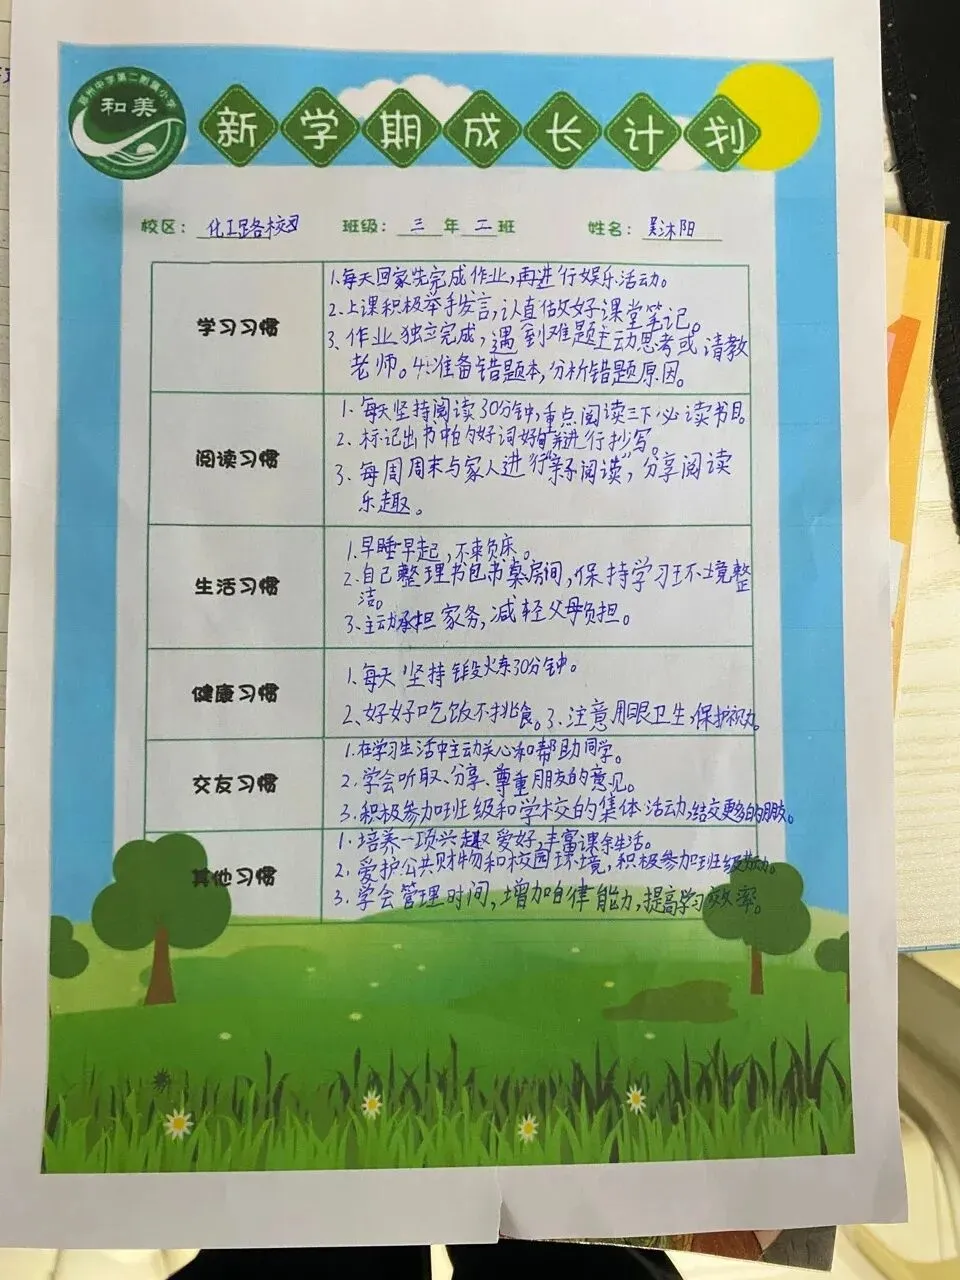 郑州中学第二附属小学
和美
新学期成长计划
校区：化工路校区 班级：三年二班 姓名：吴沐阳
学习习惯
1.每天回家先完成作业，再进行娱乐活动。
2.上课积极举手发言，认真做好课堂笔记。
3、作业独立完成，遇到难题主动思考或请教
老师。4.准备错题本，分析错题原因。
阅读习惯
1.每天坚持阅读30分钟，重点阅读三下必读书目。
2.标记出书中的好词好句并进行抄写。
3、每周周末与家人进行“亲子阅读”，分享阅读
乐趣。
生活习惯
1.早睡早起，不赖床。
2.自己整理书包书桌房间，保持学习环境整
洁。
3.主动承担家务，减轻父母负担。
健康习惯
1.每天坚持锻炼30分钟。
2、好好吃饭不挑食。3、注意用眼卫生，保护视力。
交友习惯
1.在学习生活中主动关心和帮助同学。
2.学会听取、分享、尊重朋友的意见。
3.积极参加班级和学校的集体活动，结交更多的朋友。
其他习惯
1.培养一项兴趣爱好，丰富课余生活。
2.爱护公共财物和校园环境，积极参加班级劳动。
3.学会管理时间，增加自律能力，提高学习效率。